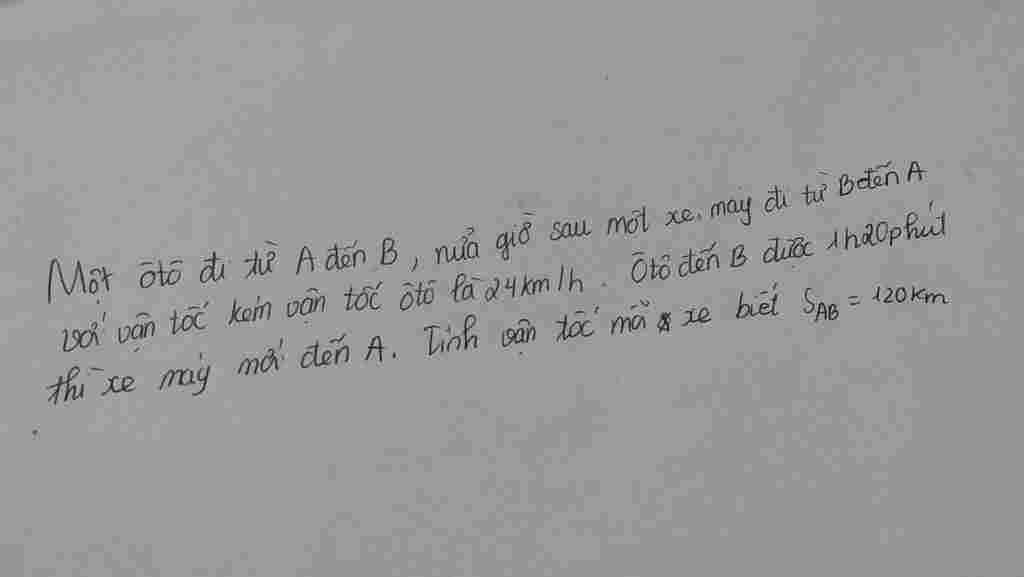 Một ôtô đi từ A đến B, nửa giờ sau một xe máy đi từ B đến A
với vận tốc kém vận tốc ôtô là 24km/h. Ôtô đến B được 1h20phút
thì xe máy mới đến A. Tính vận tốc mỗi xe biết S_AB = 120km